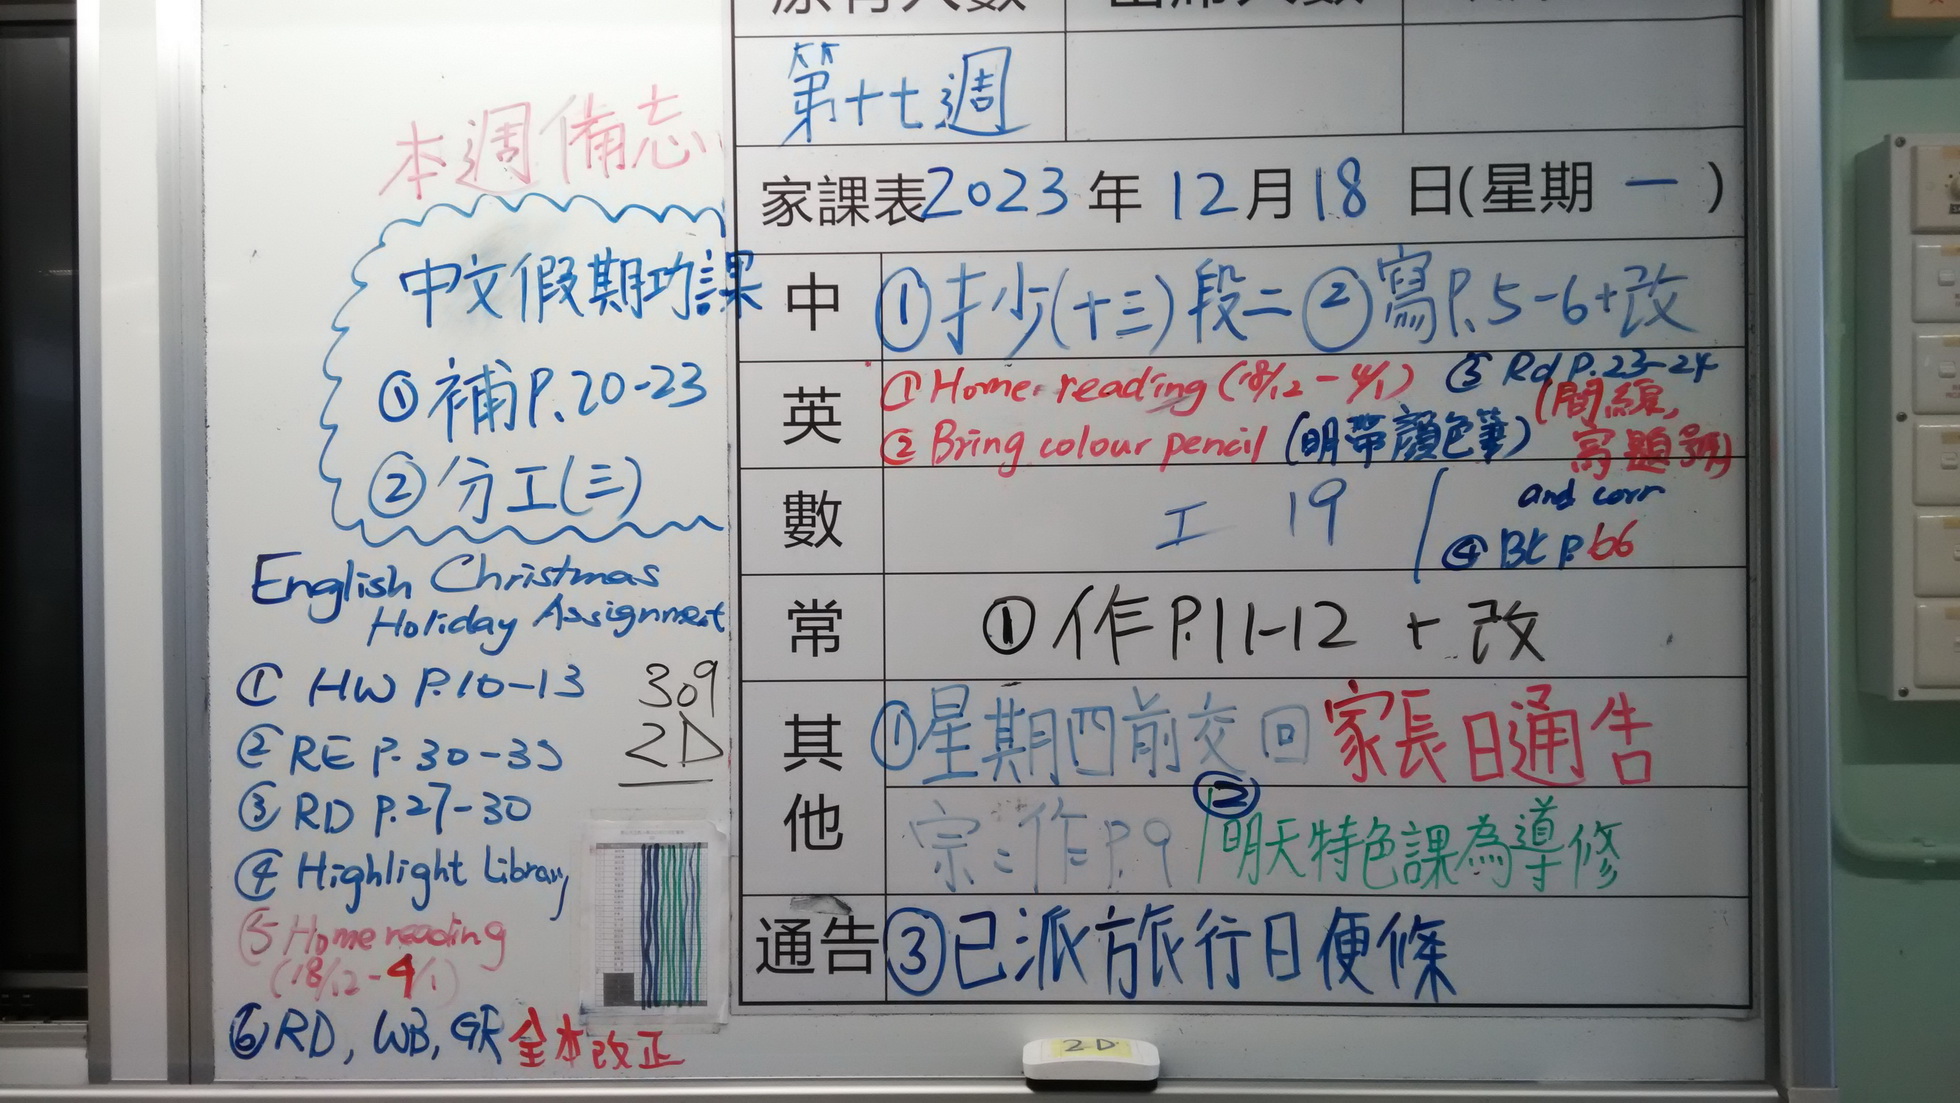 本週備志
中文假期功課
①補P.20-23
②分工(三)
English Christmas
Holiday Assignment
① HW P.10-13
309
2D
② RE P.30-33
③ RD P.27-30
④ Highlight Library
⑤ Home reading
(18/12-4/1)
⑥ RD, WB, GR 全本改正
第十七週
家課表2023年12月18日(星期一)
中 ①抄(十三)段二②寫P.5-6+改
英 ① Home reading (18/12-4/1) ③ Rd P.23-24
(間線,
② Bring colour pencil (明帶顏色筆) 寫題號)
and corr
數 工 19 ④ BK P.66
常 ①作P.11-12 + 改
其他 ①星期四前交回家長日通告
宗:作P.9 ②明天特色課為導修
通告 ③已派旅行日便條
2D